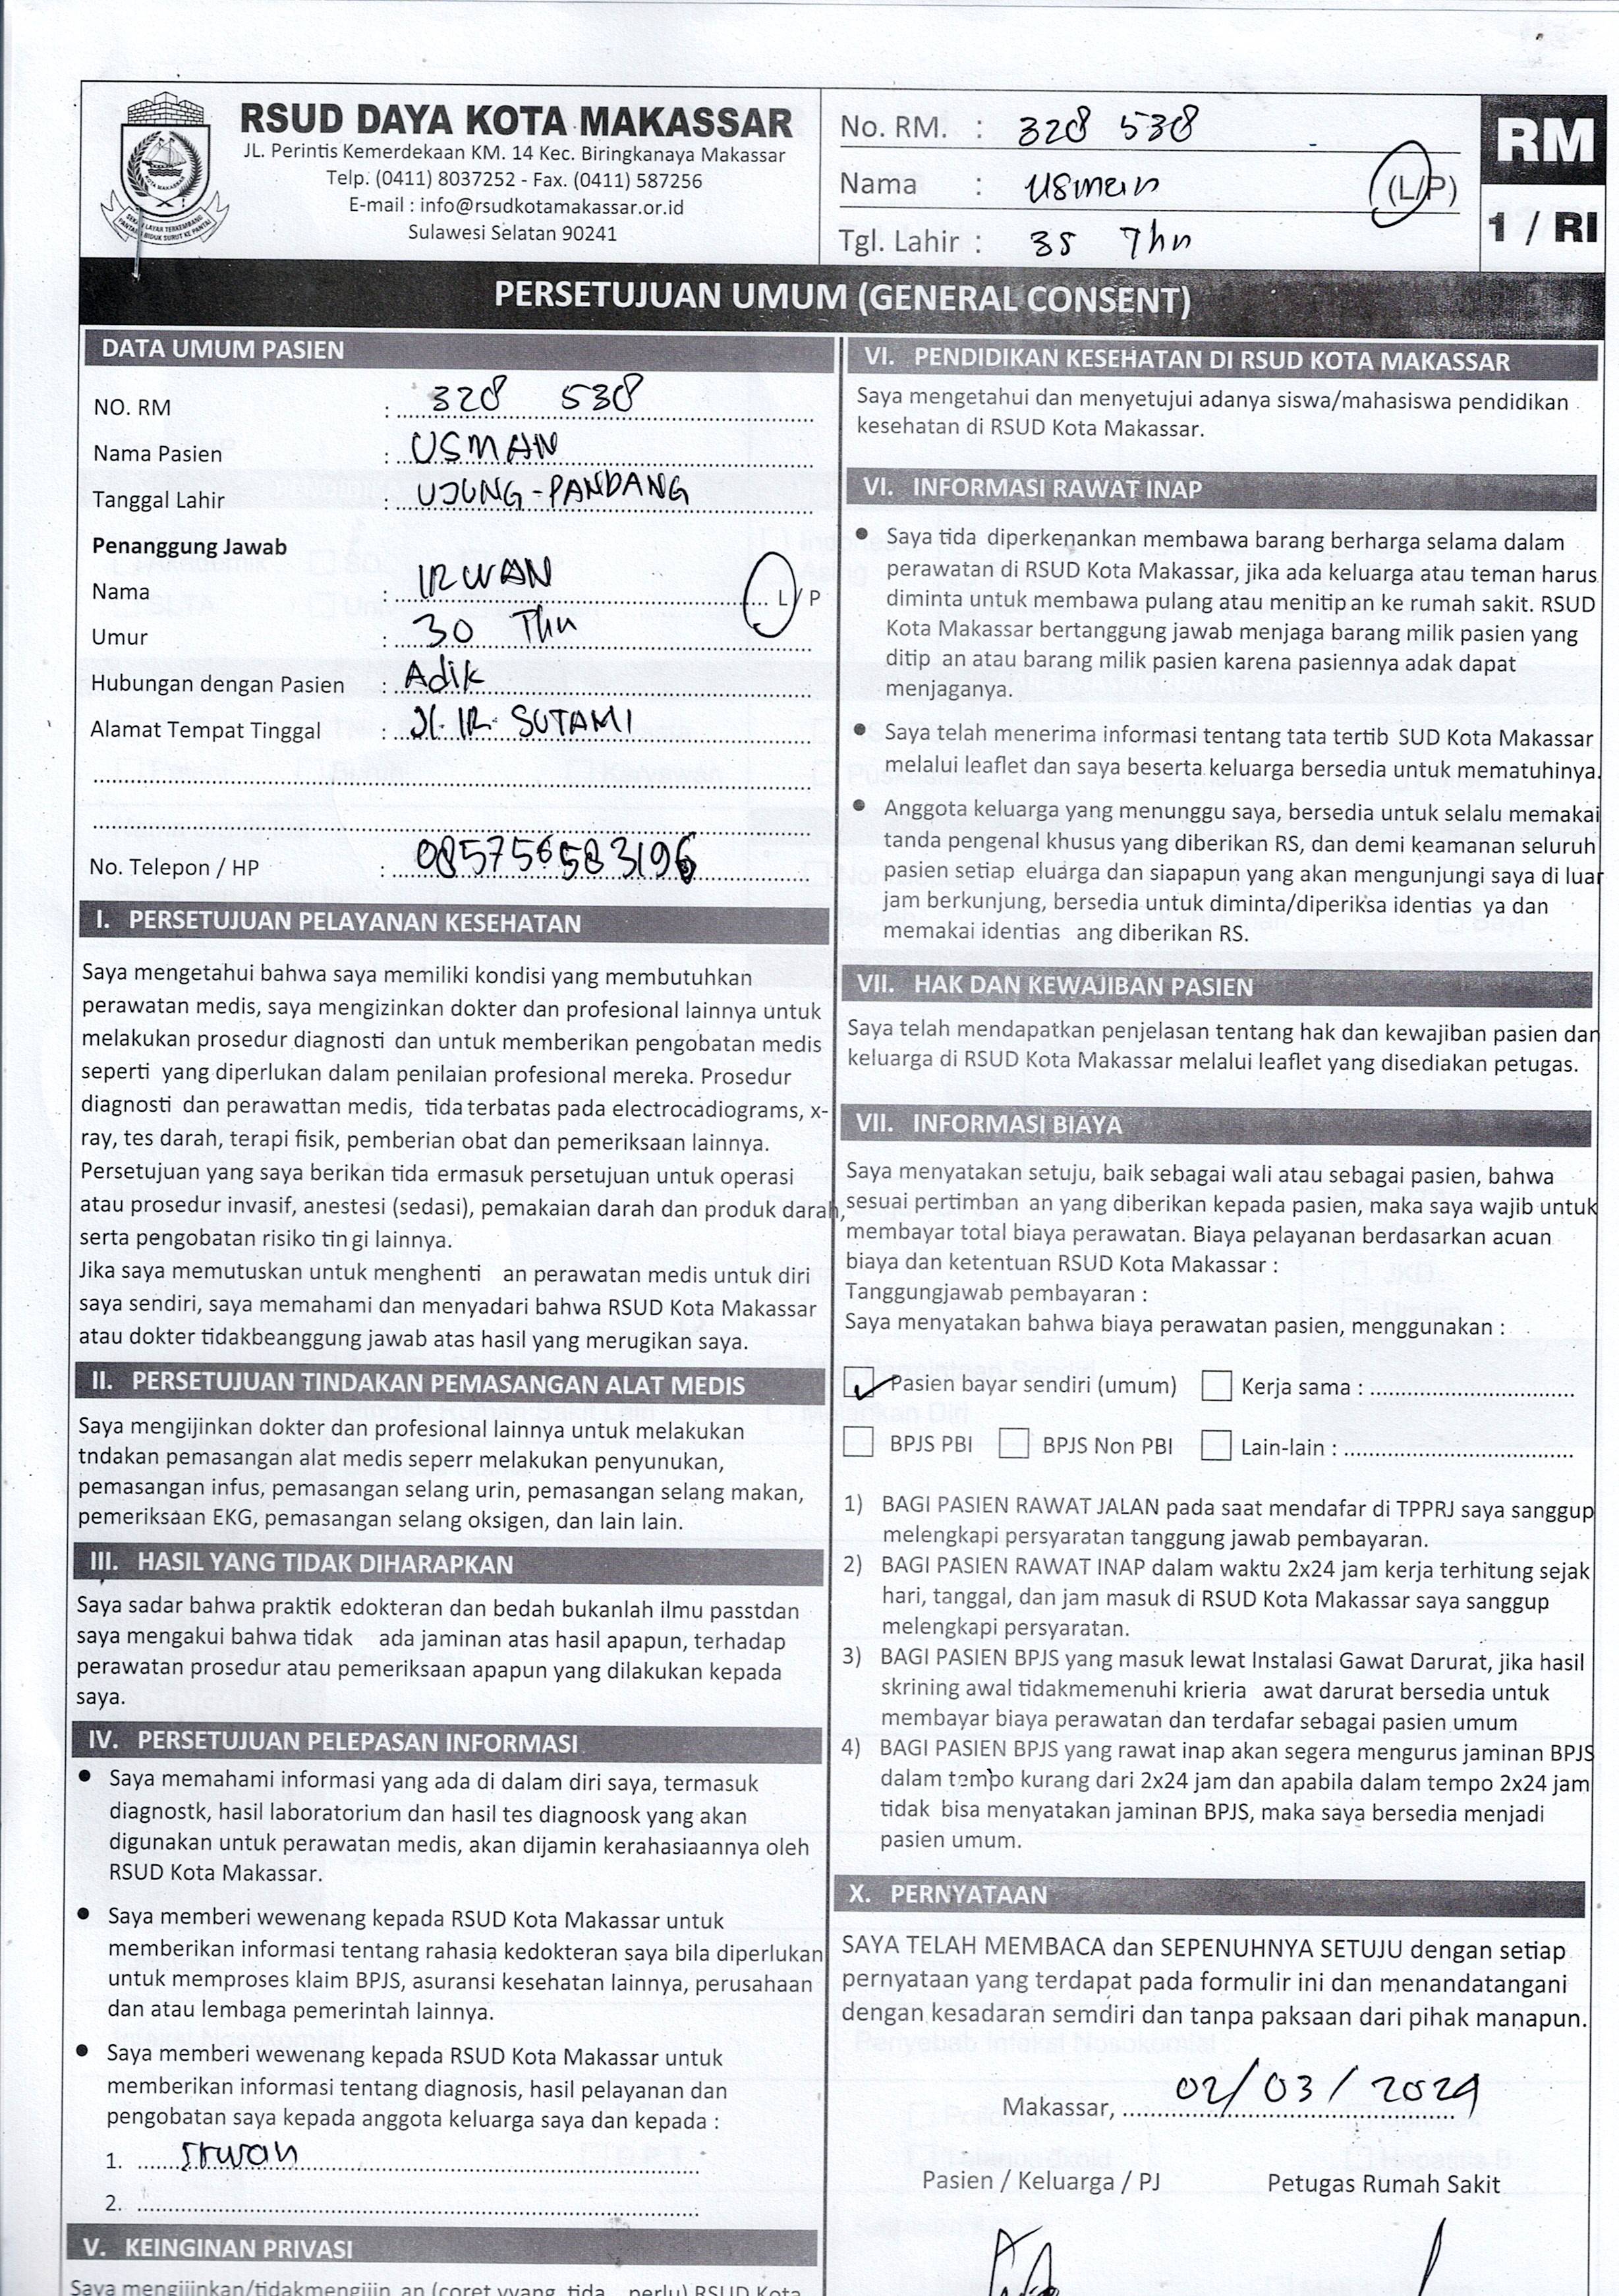 RSUD DAYA KOTA MAKASSAR
JL. Perintis Kemerdekaan KM. 14 Kec. Biringkanaya Makassar
Telp. (0411) 8037252 - Fax. (0411) 587256
E-mail : info@rsudkotamakassar.or.id
Sulawesi Selatan 90241
KOTA MAKASSAR
No. RM. : 328 538
Nama : Usman (L/P)
Tgl. Lahir : 35 Thn
RM
1 / RI
PERSETUJUAN UMUM (GENERAL CONSENT)
DATA UMUM PASIEN
NO. RM : 328 538
Nama Pasien : USMAN
Tanggal Lahir : UJUNG-PANDANG
Penanggung Jawab
Nama : IRWAN L/P
Umur : 30 Thn
Hubungan dengan Pasien : Adik
Alamat Tempat Tinggal : Jl. IR. SUTAMI
No. Telepon / HP : 085756583196
I. PERSETUJUAN PELAYANAN KESEHATAN
Saya mengetahui bahwa saya memiliki kondisi yang membutuhkan
perawatan medis, saya mengizinkan dokter dan profesional lainnya untuk
melakukan prosedur diagnosti dan untuk memberikan pengobatan medis
seperti yang diperlukan dalam penilaian profesional mereka. Prosedur
diagnosti dan perawattan medis, tida terbatas pada electrocadiograms, x-
ray, tes darah, terapi fisik, pemberian obat dan pemeriksaan lainnya.
Persetujuan yang saya berikan tida ermasuk persetujuan untuk operasi
atau prosedur invasif, anestesi (sedasi), pemakaian darah dan produk darah,
serta pengobatan risiko tin gi lainnya.
Jika saya memutuskan untuk menghenti an perawatan medis untuk diri
saya sendiri, saya memahami dan menyadari bahwa RSUD Kota Makassar
atau dokter tidakbeanggung jawab atas hasil yang merugikan saya.
II. PERSETUJUAN TINDAKAN PEMASANGAN ALAT MEDIS
Saya mengijinkan dokter dan profesional lainnya untuk melakukan
tndakan pemasangan alat medis seperr melakukan penyunukan,
pemasangan infus, pemasangan selang urin, pemasangan selang makan,
pemeriksaan EKG, pemasangan selang oksigen, dan lain lain.
III. HASIL YANG TIDAK DIHARAPKAN
Saya sadar bahwa praktik edokteran dan bedah bukanlah ilmu passtdan
saya mengakui bahwa tidak ada jaminan atas hasil apapun, terhadap
perawatan prosedur atau pemeriksaan apapun yang dilakukan kepada
saya.
IV. PERSETUJUAN PELEPASAN INFORMASI
• Saya memahami informasi yang ada di dalam diri saya, termasuk
diagnostk, hasil laboratorium dan hasil tes diagnoosk yang akan
digunakan untuk perawatan medis, akan dijamin kerahasiaannya oleh
RSUD Kota Makassar.
• Saya memberi wewenang kepada RSUD Kota Makassar untuk
memberikan informasi tentang rahasia kedokteran saya bila diperlukan
untuk memproses klaim BPJS, asuransi kesehatan lainnya, perusahaan
dan atau lembaga pemerintah lainnya.
• Saya memberi wewenang kepada RSUD Kota Makassar untuk
memberikan informasi tentang diagnosis, hasil pelayanan dan
pengobatan saya kepada anggota keluarga saya dan kepada :
1. Irwan
2.
V. KEINGINAN PRIVASI
Saya mengijinkan/tidakmengijin an (coret yyang tida perlu) RSUD Kota
VI. PENDIDIKAN KESEHATAN DI RSUD KOTA MAKASSAR
Saya mengetahui dan menyetujui adanya siswa/mahasiswa pendidikan
kesehatan di RSUD Kota Makassar.
VI. INFORMASI RAWAT INAP
• Saya tida diperkenankan membawa barang berharga selama dalam
perawatan di RSUD Kota Makassar, jika ada keluarga atau teman harus
diminta untuk membawa pulang atau menitip an ke rumah sakit. RSUD
Kota Makassar bertanggung jawab menjaga barang milik pasien yang
ditip an atau barang milik pasien karena pasiennya adak dapat
menjaganya.
• Saya telah menerima informasi tentang tata tertib SUD Kota Makassar
melalui leaflet dan saya beserta keluarga bersedia untuk mematuhinya.
• Anggota keluarga yang menunggu saya, bersedia untuk selalu memakai
tanda pengenal khusus yang diberikan RS, dan demi keamanan seluruh
pasien setiap eluarga dan siapapun yang akan mengunjungi saya di luar
jam berkunjung, bersedia untuk diminta/diperiksa identias ya dan
memakai identias ang diberikan RS.
VII. HAK DAN KEWAJIBAN PASIEN
Saya telah mendapatkan penjelasan tentang hak dan kewajiban pasien dan
keluarga di RSUD Kota Makassar melalui leaflet yang disediakan petugas.
VII. INFORMASI BIAYA
Saya menyatakan setuju, baik sebagai wali atau sebagai pasien, bahwa
sesuai pertimban an yang diberikan kepada pasien, maka saya wajib untuk
membayar total biaya perawatan. Biaya pelayanan berdasarkan acuan
biaya dan ketentuan RSUD Kota Makassar :
Tanggungjawab pembayaran :
Saya menyatakan bahwa biaya perawatan pasien, menggunakan :
Pasien bayar sendiri (umum) Kerja sama :
BPJS PBI BPJS Non PBI Lain-lain :
1) BAGI PASIEN RAWAT JALAN pada saat mendafar di TPPRJ saya sanggup
melengkapi persyaratan tanggung jawab pembayaran.
2) BAGI PASIEN RAWAT INAP dalam waktu 2x24 jam kerja terhitung sejak
hari, tanggal, dan jam masuk di RSUD Kota Makassar saya sanggup
melengkapi persyaratan.
3) BAGI PASIEN BPJS yang masuk lewat Instalasi Gawat Darurat, jika hasil
skrining awal tidakmemenuhi krieria awat darurat bersedia untuk
membayar biaya perawatan dan terdafar sebagai pasien umum
4) BAGI PASIEN BPJS yang rawat inap akan segera mengurus jaminan BPJS
dalam tempo kurang dari 2x24 jam dan apabila dalam tempo 2x24 jam
tidak bisa menyatakan jaminan BPJS, maka saya bersedia menjadi
pasien umum.
X. PERNYATAAN
SAYA TELAH MEMBACA dan SEPENUHNYA SETUJU dengan setiap
pernyataan yang terdapat pada formulir ini dan menandatangani
dengan kesadaran semdiri dan tanpa paksaan dari pihak manapun.
Makassar, 02/03/2024
Pasien / Keluarga / PJ Petugas Rumah Sakit